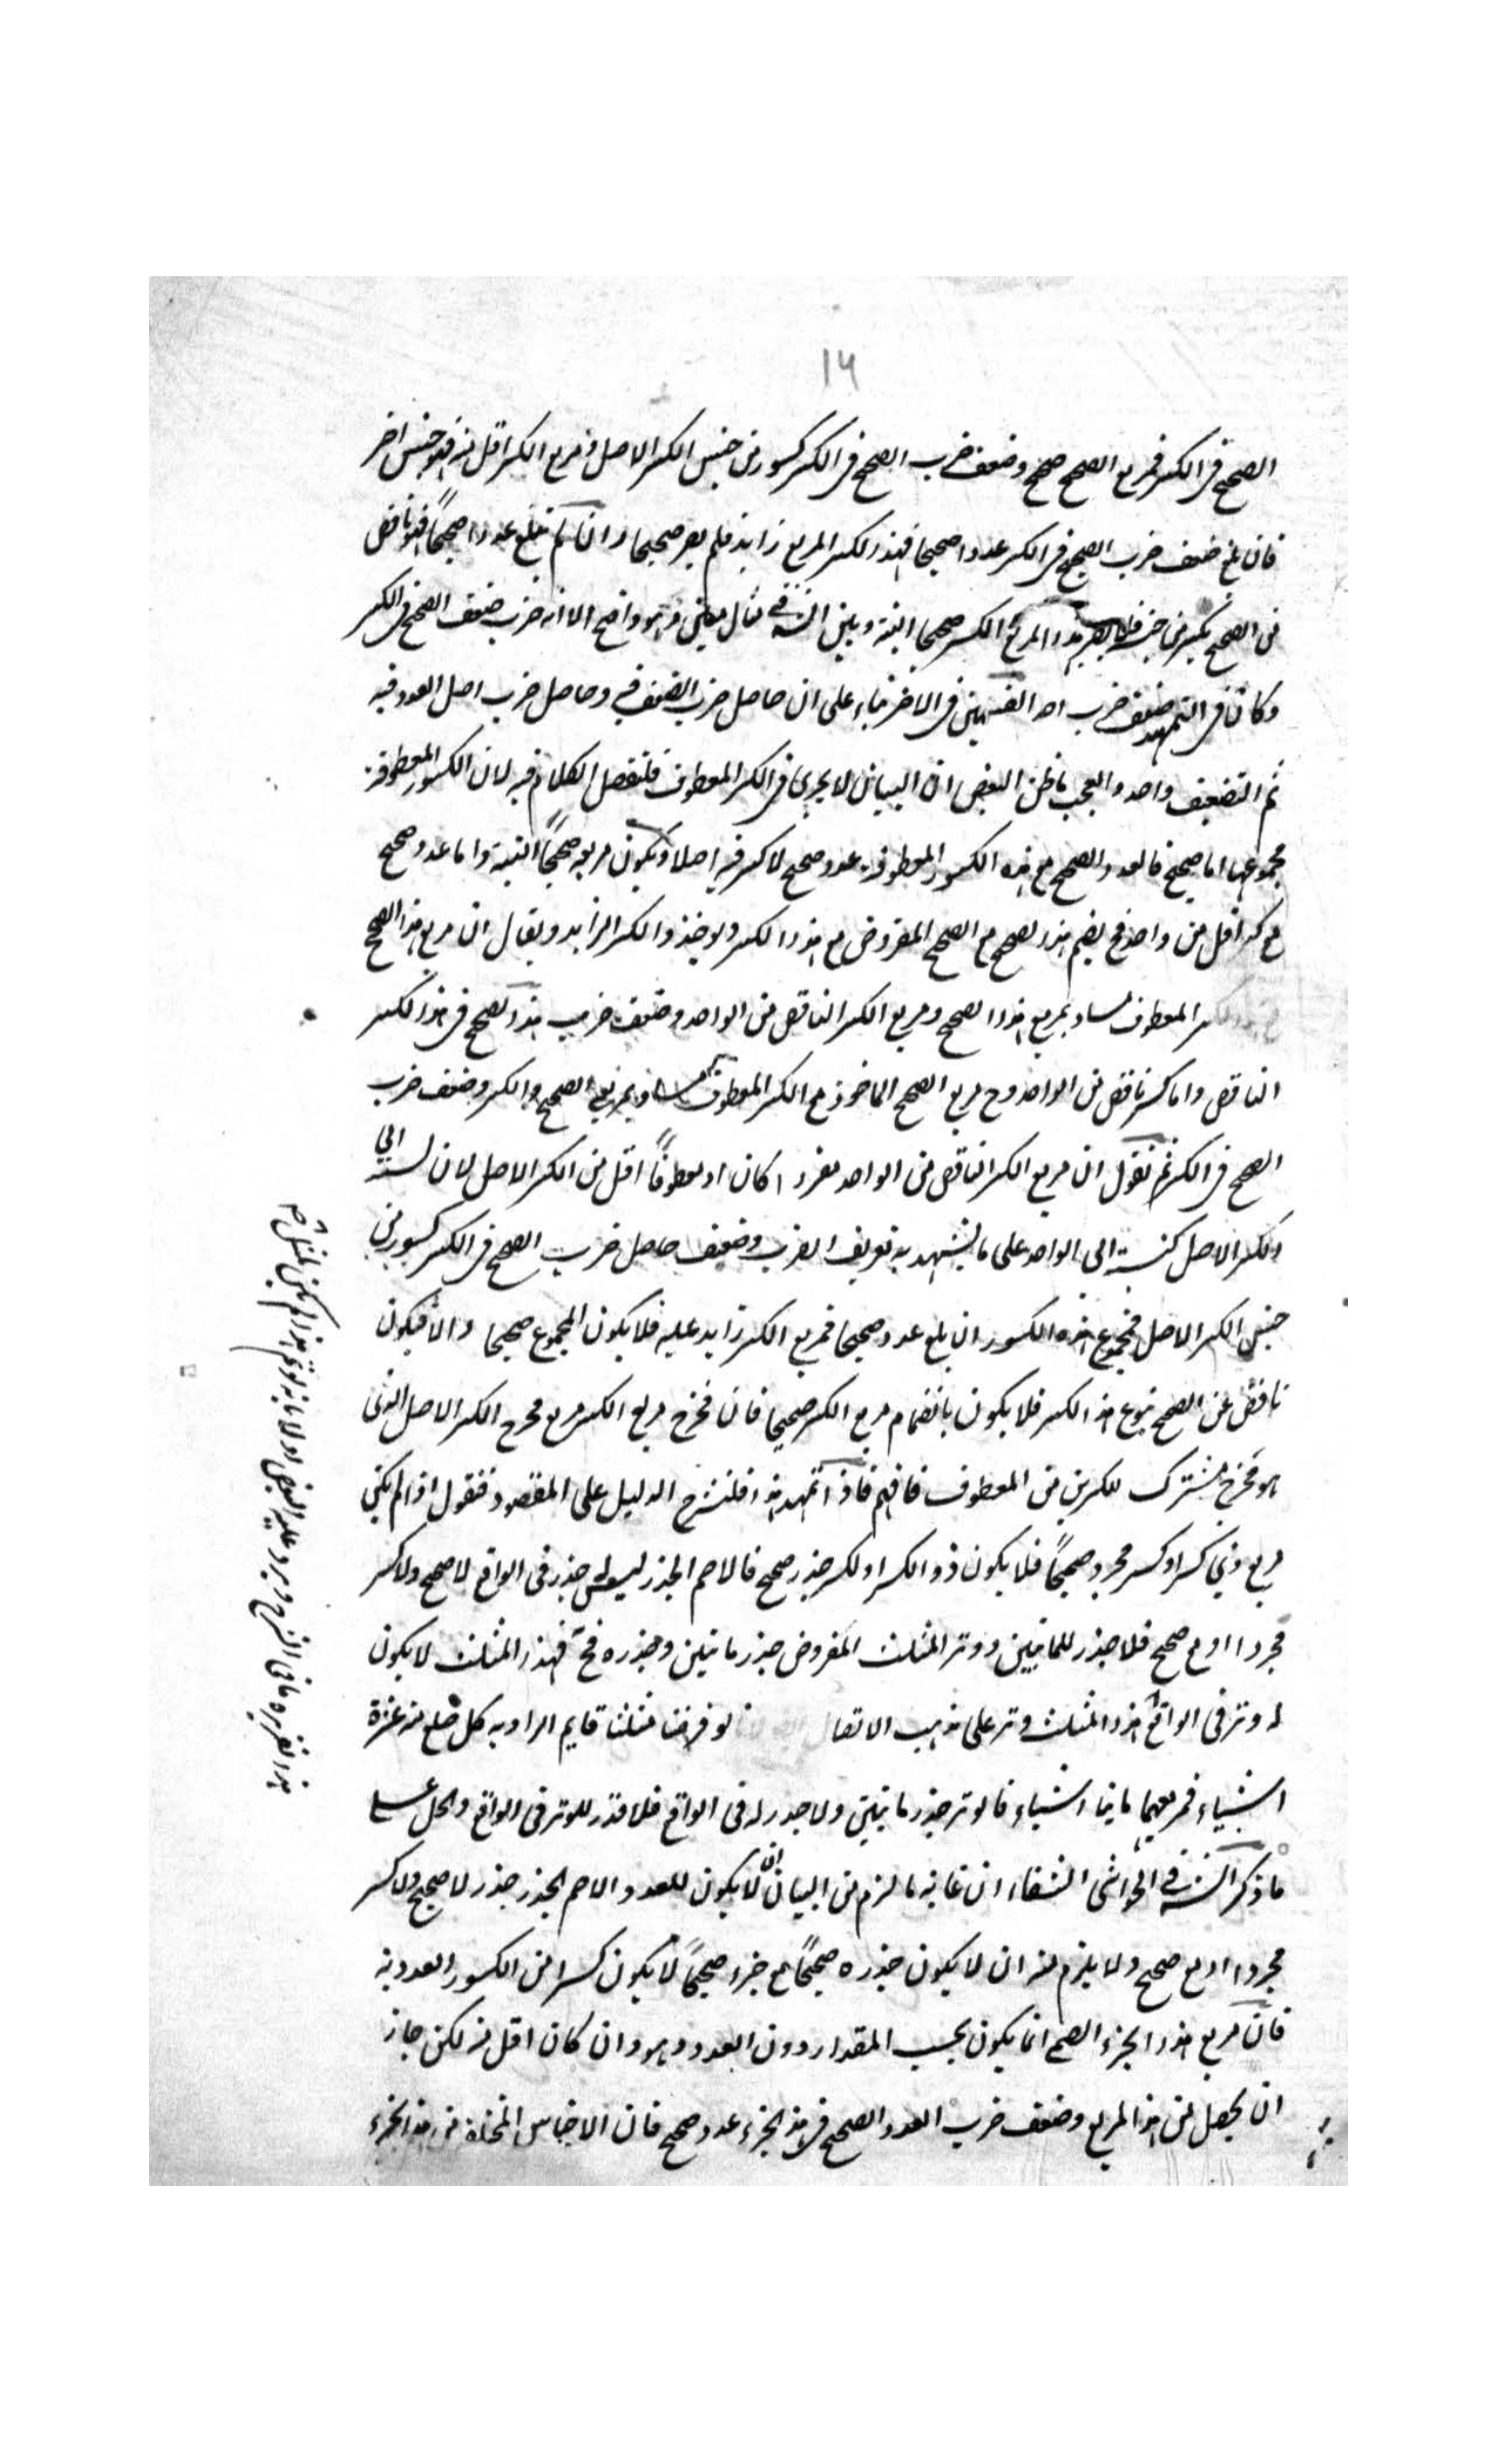 ١٤
الصحيح فى الكسر فمربع الصحيح صحيح وضعف ضرب الصحيح فى الكسر كسور من جنس الكسر الاصل ومربع الكسر اقل منه فهو جنس اخر
فان بلغ ضعف ضرب الصحيح فى الكسر عددا صحيحا فهذا الكسر المربع زايد فلم يصر صحيحا وان لم يبلغ عددا صحيحاً فهو ناقص
من الصحيح بكسر من جنسه فلا يصير بهذا المربع الكسر صحيحا البتة وبين الشيخ فى مثال معين وهو واضح الا انه ضرب ضعف الصحيح فى الكسر
وكان فى التمهيد ضعف ضرب احد القسمين فى الاخر بناء على ان حاصل ضرب الضعف فيه وحاصل ضرب اصل العدد فيه
ثم التضعيف واحد والعجب ما ظن البعض ان البيان لا يجرى فى الكسر المعطوف فلنفصل الكلام فيه لان الكسور المعطوفة
مجموعها اما صحيح فالعدد الصحيح مع هذه الكسور المعطوفة عدد صحيح لا كسر فيه اصلا ويكون مربعه صحيحاً البتة واما عدد صحيح
مع كسر اقل من واحد فح يضم هذا الصحيح مع الصحيح المفروض مع هذا الكسر ويوخذ والكسر الزايد ويقال ان مربع هذا الصحيح
المعطوف مساو بمربع هذا الصحيح ومربع الكسر الناقص من الواحد وضعف ضرب هذا الصحيح فى هذا الكسر
الناقص واما كسر ناقص من الواحد وح مربع الصحيح الماخوذ مع الكسر المعطوف مساو بمربعى الصحيح والكسر وضعف ضرب
الصحيح فى الكسر ثم نقول ان مربع الكسر الناقص من الواحد مفردا كان او معطوفاً اقل من الكسر الاصل لان نسبته الى
الكسر الاصل كنسبته الى الواحد على ما يشهد به تعريف الضرب وضعف حاصل ضرب الصحيح فى الكسر كسور من
جنس الكسر الاصل فمجموع هذه الكسور ان بلغ عددا صحيحا فمربع الكسر زايد عليه فلا يكون المجموع صحيحا والا فيكون
ناقصا عن الصحيح بنوع هذا الكسر فلا يكون بانضمام مربع الكسر صحيحا فان مخرج مربع الكسر مربع مخرج الكسر الاصل الذى
هو مخرج مشترك للكسرين من المعطوف فافهم فاذا تمهد هذا فلنشرح الدليل على المقصود فنقول اذا لم يكن
مربع ذى كسر او كسر مجرد صحيحاً فلا يكون ذو الكسر او لكسر جذر صحيح فالاصم الجذر ليس له جذر فى الواقع لا صحيح ولا كسر
مجردا او مع صحيح فلا جذر للمأتين ووتر المثلث المفروض جذر مأتين وجذره فح فهذا المثلث لا يكون
له وتر فى الواقع هذا المثلث وتر على مذهب الاتصا لو فرضنا مثلثا قايم الزاويه كل ضلع منه عشرة
اشياء فمربعهما مأتا اشياء فالوتر جذر مأتين ولا جذر له فى الواقع فلا قدر للوتر فى الواقع والحل على
ما ذكر الشيخ فى الحواشى الشفاء ان غاية ما لزم من البيان ان لا يكون للعدد الاصم الجذر جذر لا صحيح ولا كسر
مجردا او مع صحيح ولا يلزم منه ان لا يكون جذره صحيحاً مع جزء صحيحاً لا يكون كسرا من الكسور العددية
فان مربع هذا الجزء الصحيح انما يكون بحسب المقدار دون العدد وهو وان كان اقل منه لكن جاز
ان يحصل من هذا المربع وضعف ضرب العدد الصحيح فى هذا الجزء عدد صحيح فان الاجناس المختلفة من هذا الجزء